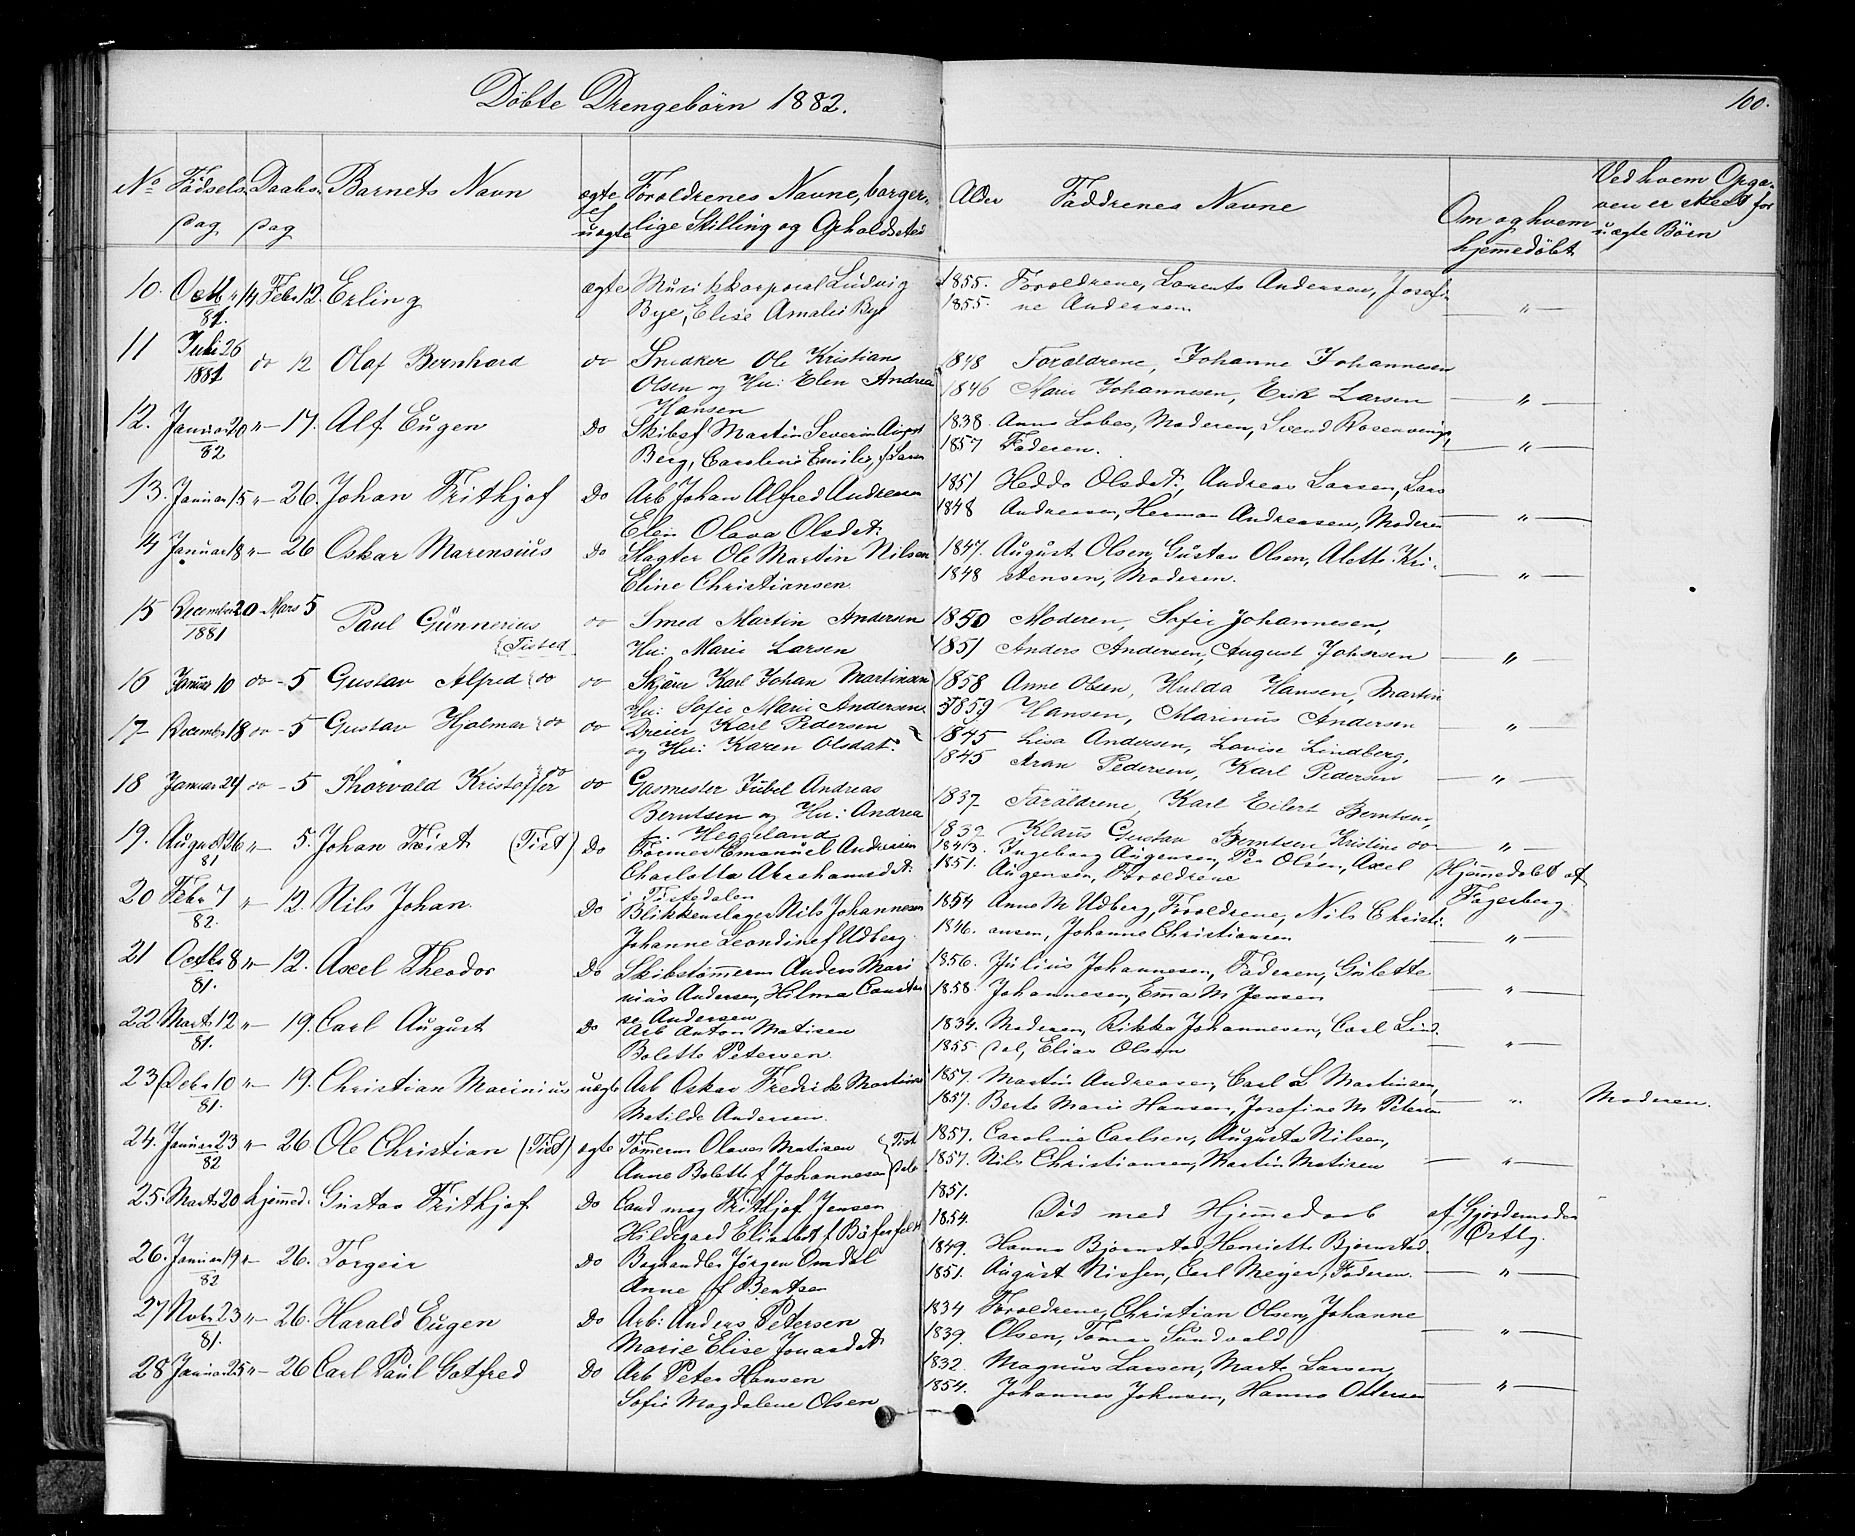 Döbte Drengebörn 1882.
100.
No Födsels Daabs Barnets Navn ægte Foreldrenes Navne, borger- Alder Faddrenes Navne Om og hvem Ved hvem Opga-
dag dag uægte lige Stilling og Opholdsted hjemmedöbt ven er skeed for
uægte Börn
10. Octbr 14 Febr 12. Erling ægte Musikkorporal Ludvig 1855. Foreldrene, Lorents Andersen, Josefi-
81. Bye, Elise Amalie Bye 1855. ne Andersen — " —
11 Juli 26 do 12 Olaf Bernhard do Snedker Ole Kristians 1848 Foreldrene, Johanne Johannesen
1881 Olsen og Hu: Elen Andrea 1846 Marie Johannesen, Erik Larsen — " —
Hansen
12. Januar 20 " - 17. Alf Eugen Do Skibsf Martin Severin August 1838. Anna Lobes, Moderen, Svend Rosenvinge,
82 Berg, Caroline Emilie, f. 1857 Faderen. — " —
13. Januar 15 " - 26. Johan Frithjof Do Arb Johan Alfred Andresen 1851 Hedda Olsdt, Andreas Larsen, Lars
Elen Olava Olsdt. 1848 Andreasen, Herman Andreasen, Moderen — " —
4 Januar 18 " - 26 Oskar Marensius Do Slagter Ole Martin Nilsen 1847. August Olsen, Gustav Olsen, Alette Kri-
Eline Christiansen. 1848 stensen, Moderen. — " —
15 December 20 Mars 5 Paul Gunnerius do Smed Martin Andersen 1850 Moderen, Sofie Johannesen,
1881 (Tisted Hu: Marie Larsen 1851 Anders Andersen, August Johnsen — " —
16 Januar 10 do - 5 Gustav Alfred (do do Skjær Karl Johan Martinsen 1858 Anne Olsen, Hulda Hansen, Martin
Hu: Sofie Marie Andersen. 1859 Hansen, Marinus Andersen — " —
17 December 18 do - 5 Gustav Hjalmar (do do Dreier Karl Pedersen 1845 Lisa Andersen, Lovise Lindberg,
og Hu: Karen Olsdat. 1845 Aran Pedersen, Karl Pedersen — " —
18 Januar 24 do - 5 Thorvald Kristoffer do Gasmester Jubel Andreas 1837 Foräldrene, Karl Eilert Berntsen,
Berntsen og Hu: Andrea
f. Heggeland 1832 Klaus Gustav Berntsen Kristine do — " —
19. August 26 " - 5. Johan Krist (Tist) Do Former Emanuel Andresen 1843. Ingeborg Augensen, Per Olsen, Axel Hjemmedöbt af
81 Charlotte Abrahamsdt. 1851. Augensen, Foreldrene Fagerberg.
i Tistedalen
20 Febr 7 " - 12. Nils Johan Do Blikkenslager Nils Johannesen 1854 Anne M Udberg, Foreldrene, Nils Christi-
82. Johanne Leondine f Udberg. 1846. ansen, Johanne Christiansen — " —
21 Octbr 8 " - 12. Axel Theodor Do Skibstömmerm Anders Mari 1856. Julius Johannesen, Faderen, Gulette
81. nius Andersen, Hilma Constan 1858. Johannesen, Emma M Jensen — " —
se Andersen
22 Marts 12 " - 19. Carl August Do Arb Anton Matisen 1834. Moderen, Rikka Johannesen, Carl Lind-
81. Bolette Petersen. 1855 dal, Elias Olsen — " —
23 Debr 10 " - 19. Christian Marinius uægte Arb Oskar Fredrik Martins 1857. Martin Andreasen, Carl L Martinsen,
81. Matilde Andersen. 1857. Berte Marie Hansen, Josefine M Petersen — " — Moderen.
24. Januar 23 " - 26 Ole Christian (Tist) ægte Tömerm Olaves Matisen (Tist 1857. Caroline Carlsen, Augusta Nilsen,
82 Anne Bolette f Johannesen (dale 1857. Nils Christiansen, Martin Matisen — " —
25. Marts 20 hjemmed. Gustav Frithjof Do Cand mag Frithjof Jensen 1851.
Hildegard Elisabet f 1854. Död med Hjemmedaab af Gjordemoder
Örtby.
26. Januar 19 " - 26. Torgeir Do Boghandler Jörgen Omdal 1849. Hanna Björnstad, Henriette Björnstad.
82 Anne f Bentsen 1851. August Nissen, Carl Meyer, Faderen. — " —
27 Novbr 23 " - 26. Harald Eugen Do Arb: Anders Petersen 1834 Foreldrene, Christian Olsen, Johanne
81. Marie Elise Jonasdt. 1839. Olsen, Tomas Sundvald, — " —
28 Januar 25 " - 26 Carl Paul Gotfred Do Arb Peter Hansen 1832. Magnus Larsen, Marte Larsen,
Sofie Magdalene Olsen 1854. Johannes Johnsen, Hanna Ottersen — " —